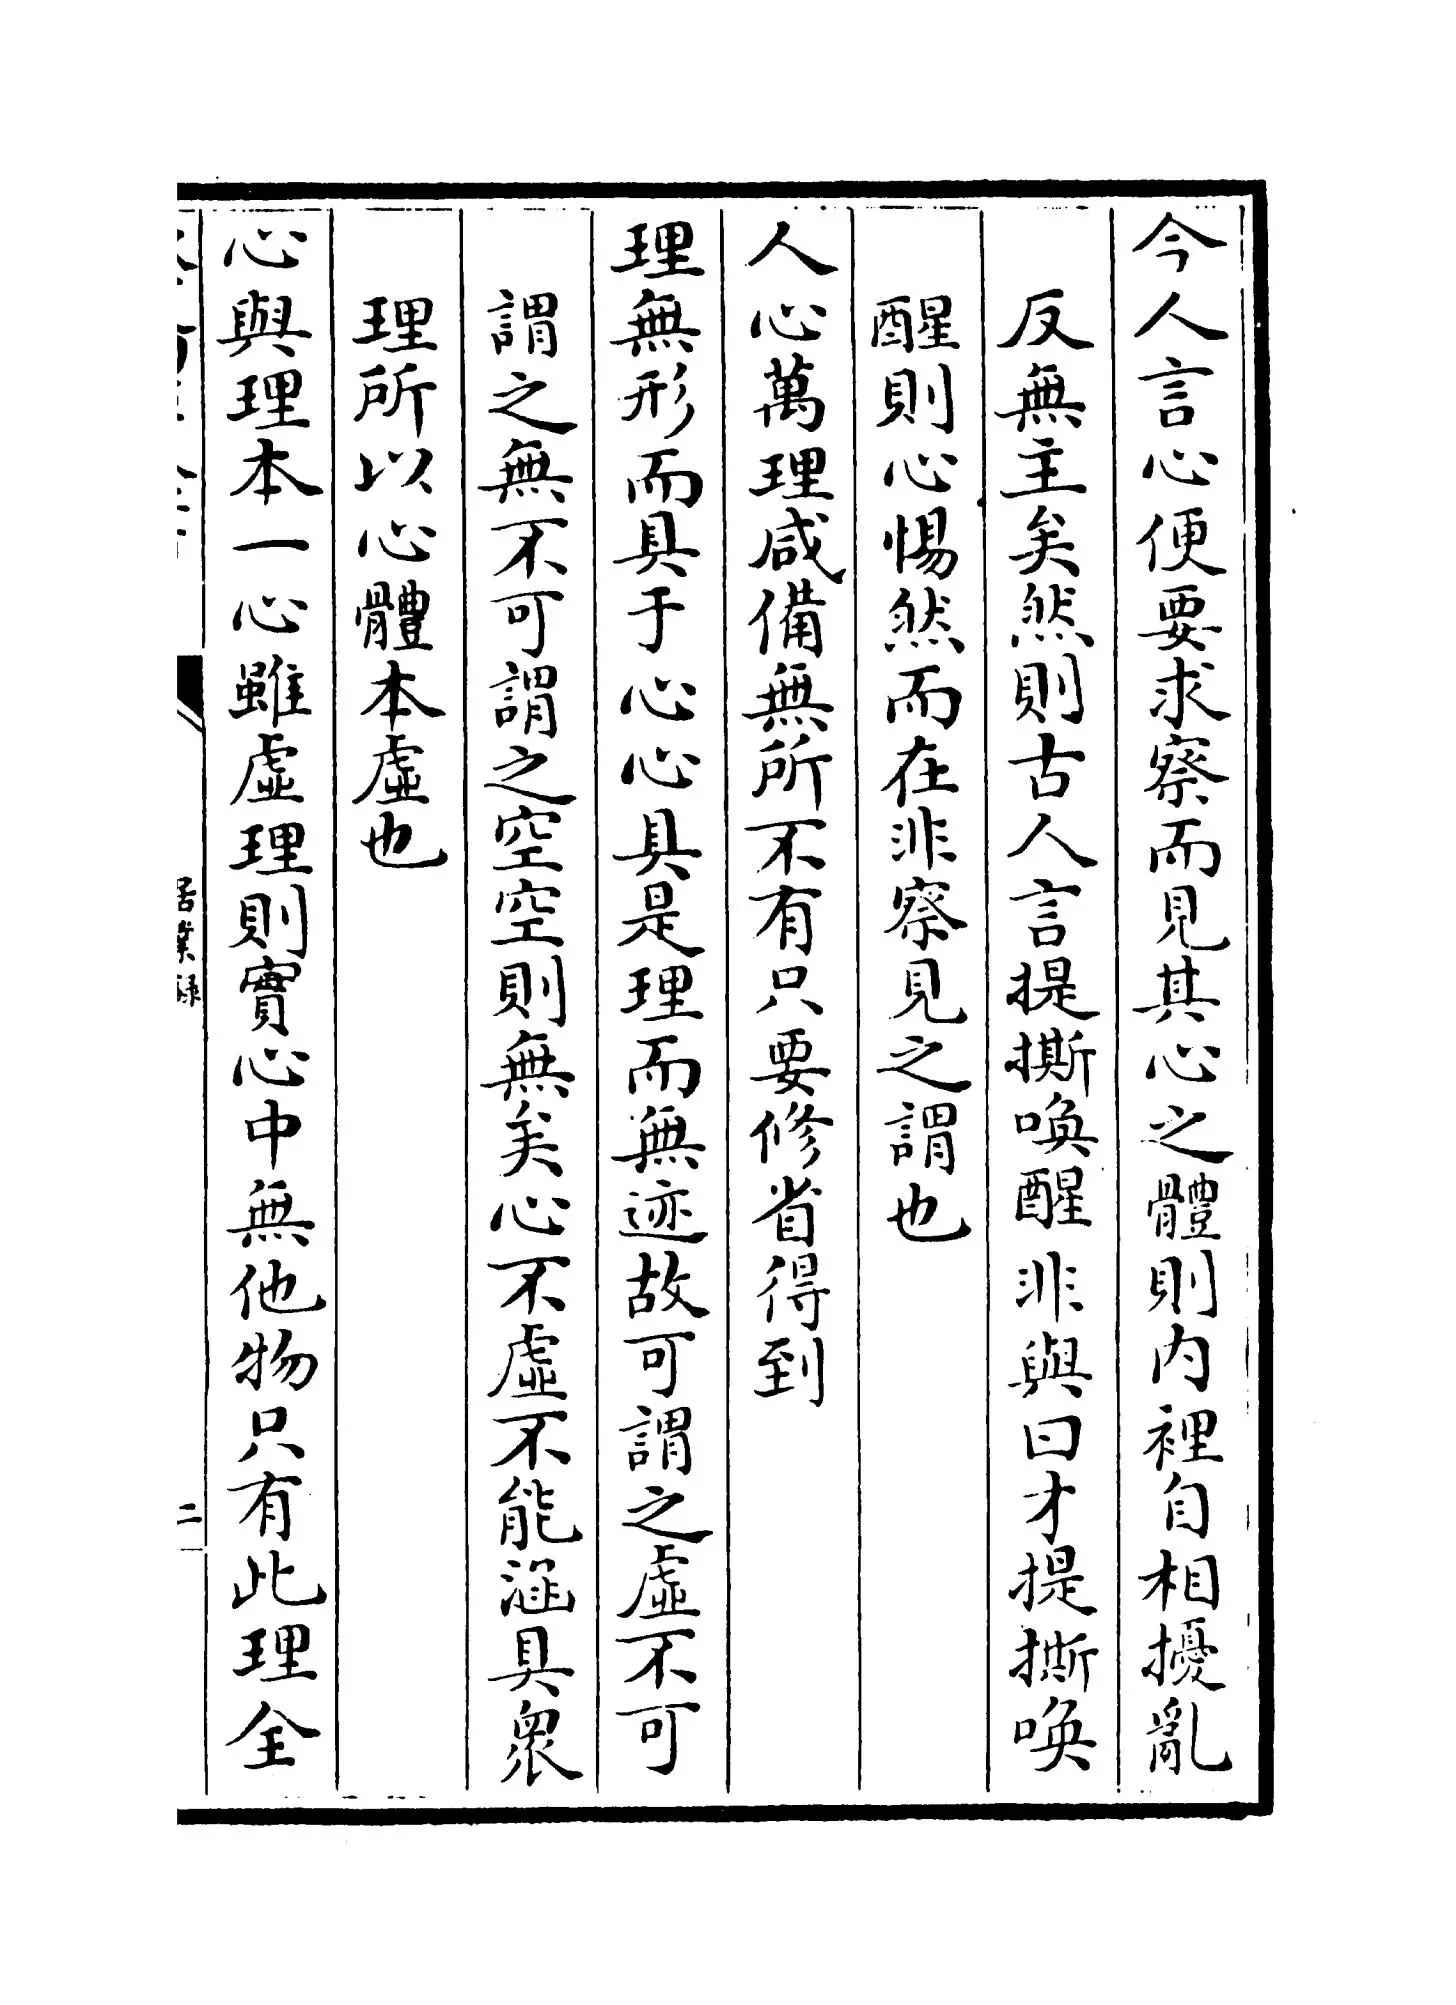 今人言心便要求察而見其心之體則內裡自相擾亂
反無主矣然則古人言提撕喚醒非與曰才提撕喚
醒則心惕然而在非察見之謂也
人心萬理咸備無所不有只要修省得到
理無形而具于心心具是理而無迹故可謂之虛不可
謂之無不可謂之空空則無矣心不虛不能涵具衆
理所以心體本虛也
心與理本一心雖虛理則實心中無他物只有此理全
居業録
二